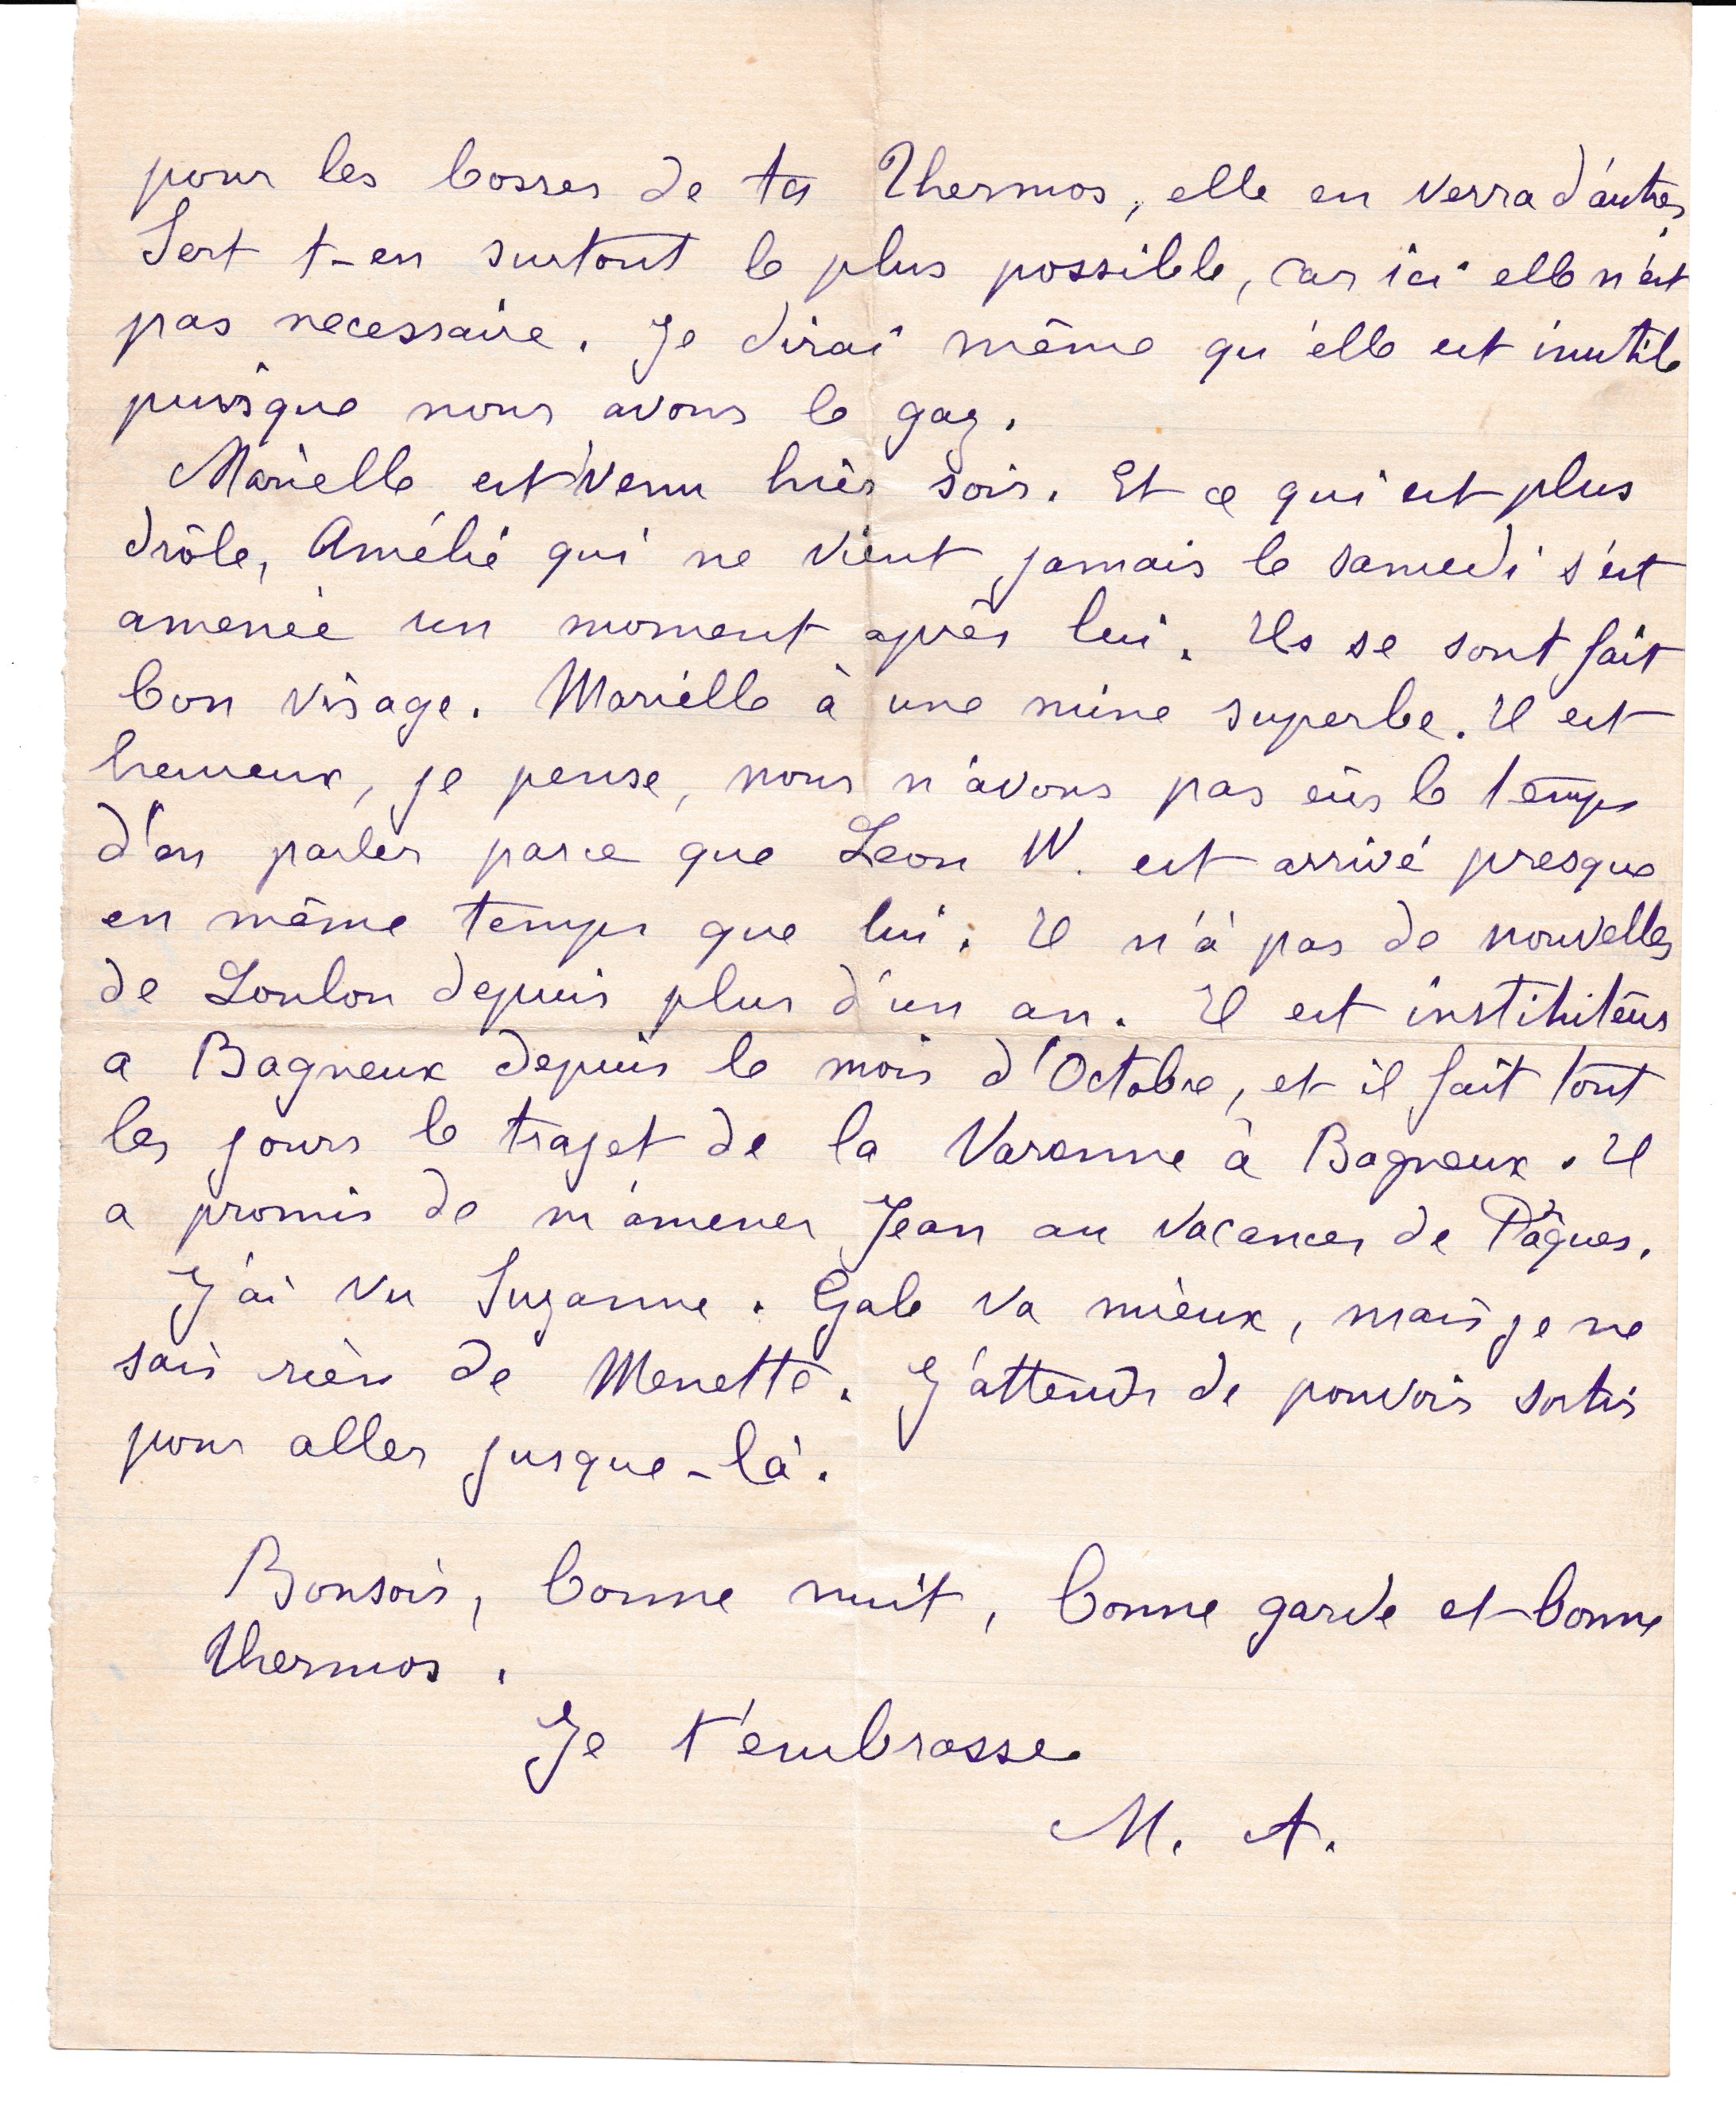 pour les bosses de ta Thermos, elle en verra d'autres,
Sert t-en surtout le plus possible, car ici elle n'est
pas necessaire. Je dirai même qu'elle est inutile
puisque nous avons le gaz.
Marielle est venu hier soir. Et ce qui est plus
drôle, Amélie qui ne vient jamais le samedi s'est
amenée un moment après lui. Ils se sont fait
bon visage. Marielle à une mine superbe. Il est
heureux, je pense, nous n'avons pas eûs le temps
d'en parler parce que Leon W. est arrivé presque
en même temps que lui. Il n'a pas de nouvelles
de Loulou depuis plus d'un an. Il est instituteur
a Bagneux depuis le mois d'Octobre, et il fait tout
les jours le trajet de la Varenne à Bagneux. Il
a promis de m'amener Jean au vacances de Pâques.
J'ai vu Suzanne. Gabe va mieux, mais je ne
sais rien de Menette. J'attends de pouvoir sortir
pour aller jusque-là.
Bonsoir, bonne nuit, bonne garde et bonne
Thermos.
Je t'embrasse
M. A.